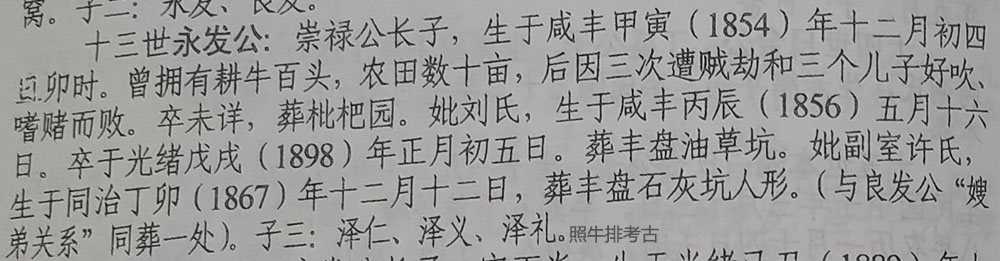 窝。子二：永发、良发。
十三世永发公：崇禄公长子，生于咸丰甲寅（1854）年十二月初四
日卯时。曾拥有耕牛百头，农田数十亩，后因三次遭贼劫和三个儿子好吹、
嗜赌而败。卒未详，葬枇杷园。妣刘氏，生于咸丰丙辰（1856）五月十六
日。卒于光绪戊戌（1898）年正月初五日。葬丰盘油草坑。妣副室许氏，
生于同治丁卯（1867）年十二月十二日，葬丰盘石灰坑人形。（与良发公“嫂
弟关系”同葬一处）。子三：泽仁、泽义、泽礼。照牛排考古